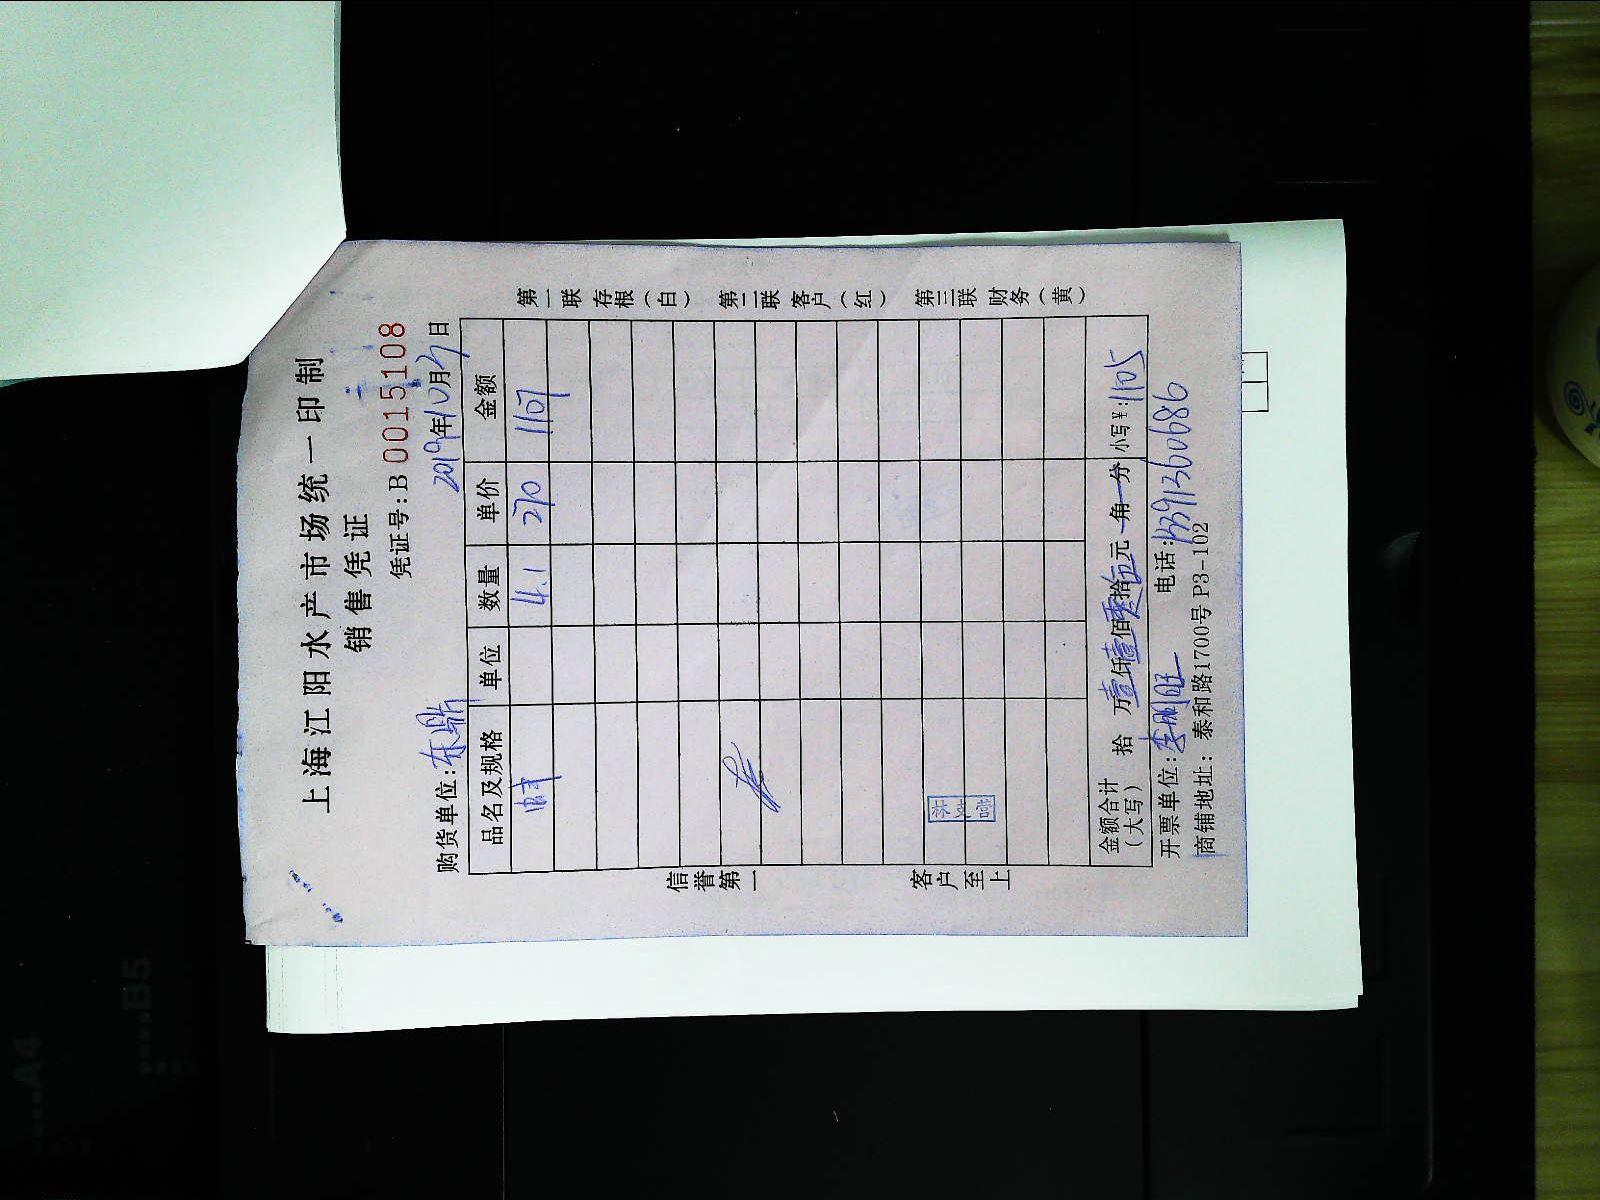 上海江阳水产市场统一印制
销售凭证
凭证号:B 0015108
购货单位:东鼎 2019年10月27日
品名及规格 单位 数量 单价 金额
4.1 270 1107
信誉第一
客户至上
第一联 存根(白) 第二联 客户(红) 第三联 财务(黄)
金额合计(大写) 拾 万壹仟壹佰零拾伍元 角 分 小写¥:1105
开票单位:李明旺 电话:13391360686
商铺地址: 泰和路1700号 P3-102
A4
B5